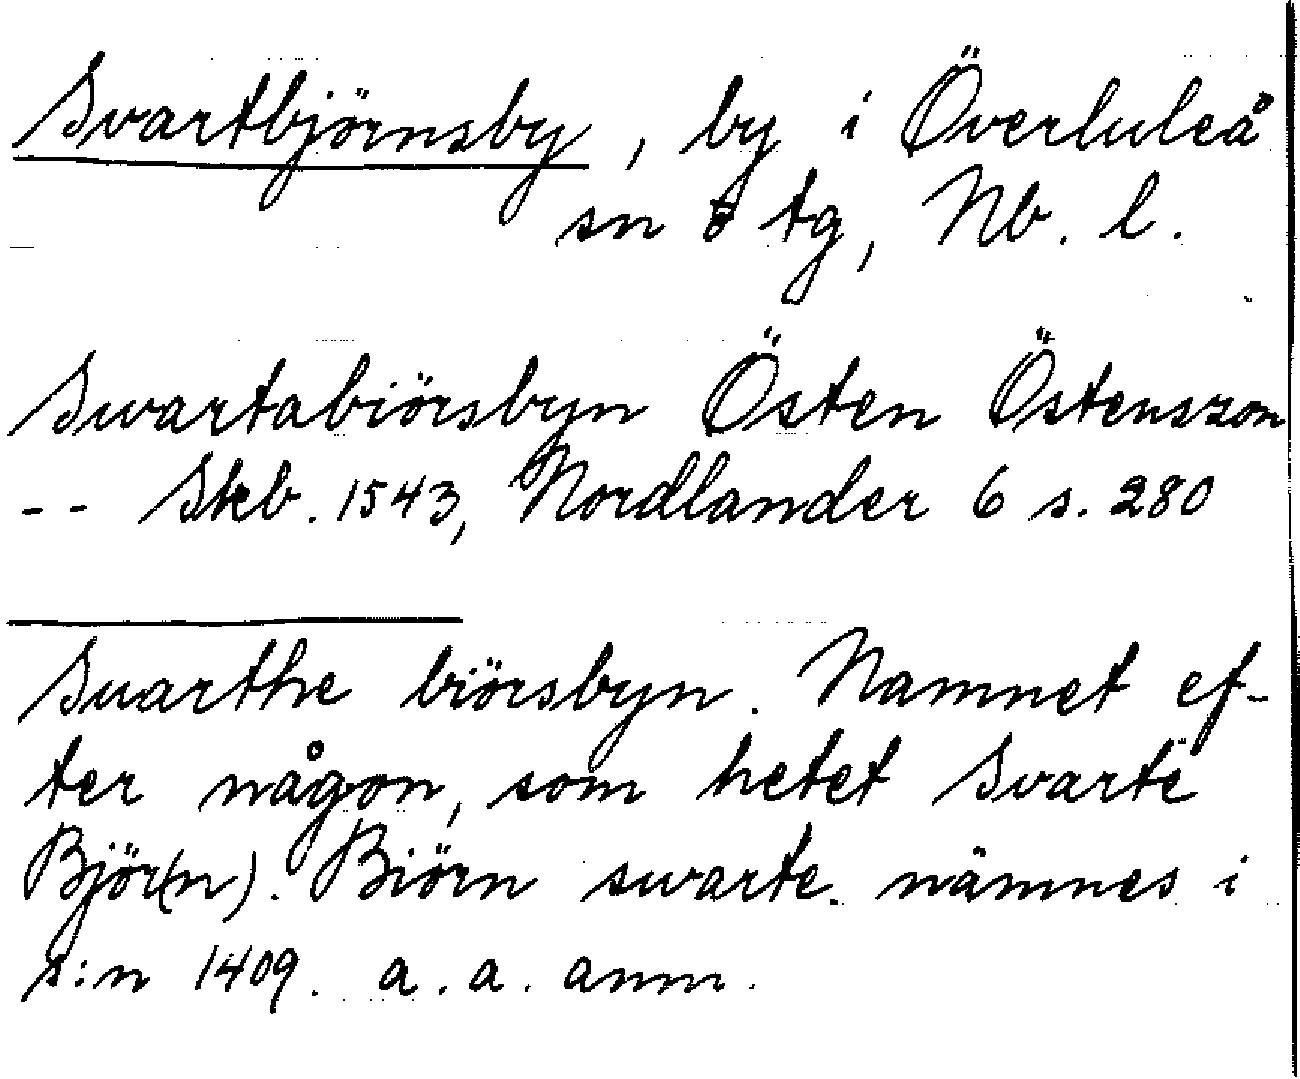 Svartbjörnsby, by i Överluleå
sn o tg, Nb. l.
Swartabiörsbyn Östen Östenszon
-- Skb. 1543, Nordlander 6 s. 280
Suarthe biörsbyn. Namnet ef-
ter någon, som hetet Svarte
Björ(n). Biörn swarte nämnes i
s:n 1409. a. a. anm.